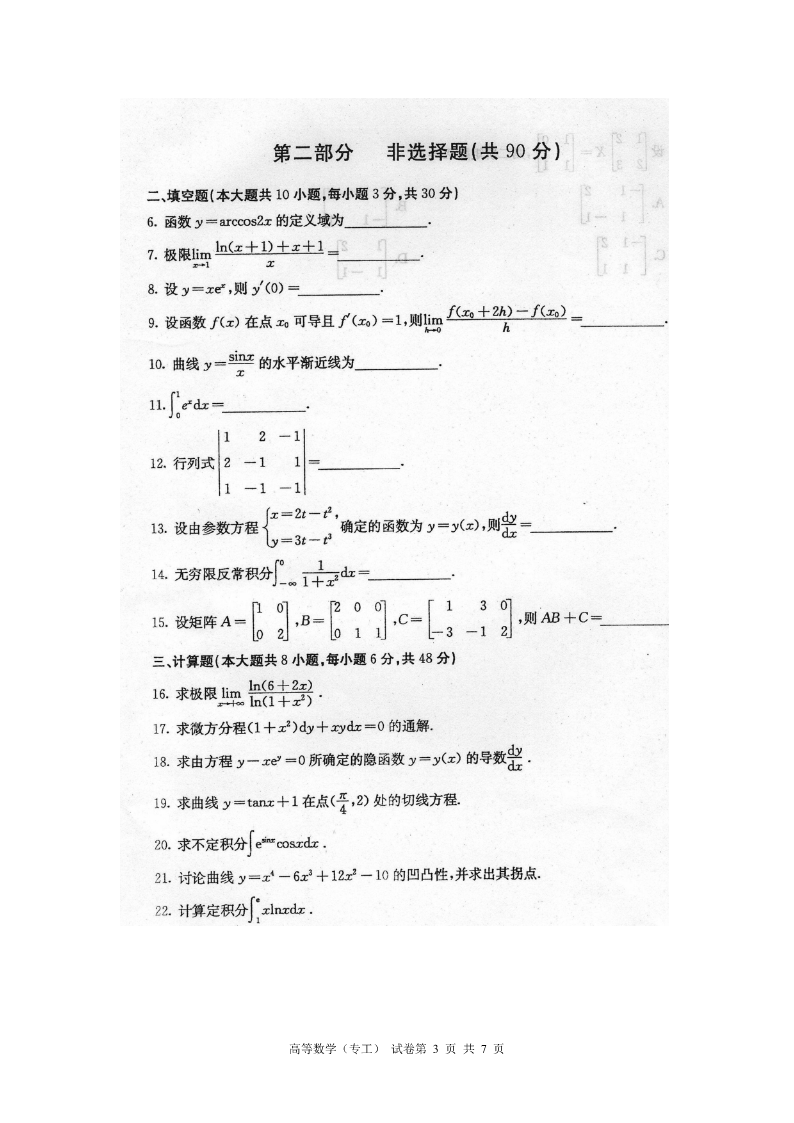 第二部分 非选择题(共 90 分)
二、填空题(本大题共 10 小题,每小题 3 分,共 30 分)
6. 函数 y=arccos2x 的定义域为________.
7. 极限lim_{x→1} \frac{ln(x+1)+x+1}{x}=________.
8. 设 y=xe^x,则 y′(0)=________.
9. 设函数 f(x) 在点 x₀ 可导且 f′(x₀)=1,则lim_{h→0} \frac{f(x₀+2h)-f(x₀)}{h}=________.
10. 曲线 y=\frac{sinx}{x} 的水平渐近线为________.
11. ∫_0^1 e^x dx=________.
12. 行列式 |1 2 -1; 2 -1 1; 1 -1 -1|=________.
13. 设由参数方程 {x=2t-t², y=3t-t³ 确定的函数为 y=y(x),则\frac{dy}{dx}=________.
14. 无穷限反常积分∫_{-∞}^0 \frac{1}{1+x²}dx=________.
15. 设矩阵 A=[1 0; 0 2],B=[2 0 0; 0 1 1],C=[1 3 0; -3 -1 2],则 AB+C=________
三、计算题(本大题共 8 小题,每小题 6 分,共 48 分)
16. 求极限 lim_{x→+∞} \frac{ln(6+2x)}{ln(1+x²)}.
17. 求微分方程(1+x²)dy+xydx=0 的通解.
18. 求由方程 y-xe^y=0 所确定的隐函数 y=y(x) 的导数\frac{dy}{dx}.
19. 求曲线 y=tanx+1 在点(\frac{π}{4},2) 处的切线方程.
20. 求不定积分∫e^{sinx}cosxdx.
21. 讨论曲线 y=x⁴-6x³+12x²-10 的凹凸性,并求出其拐点.
22. 计算定积分∫_1^e xlnxdx.
高等数学(专工) 试卷第 3 页 共 7 页